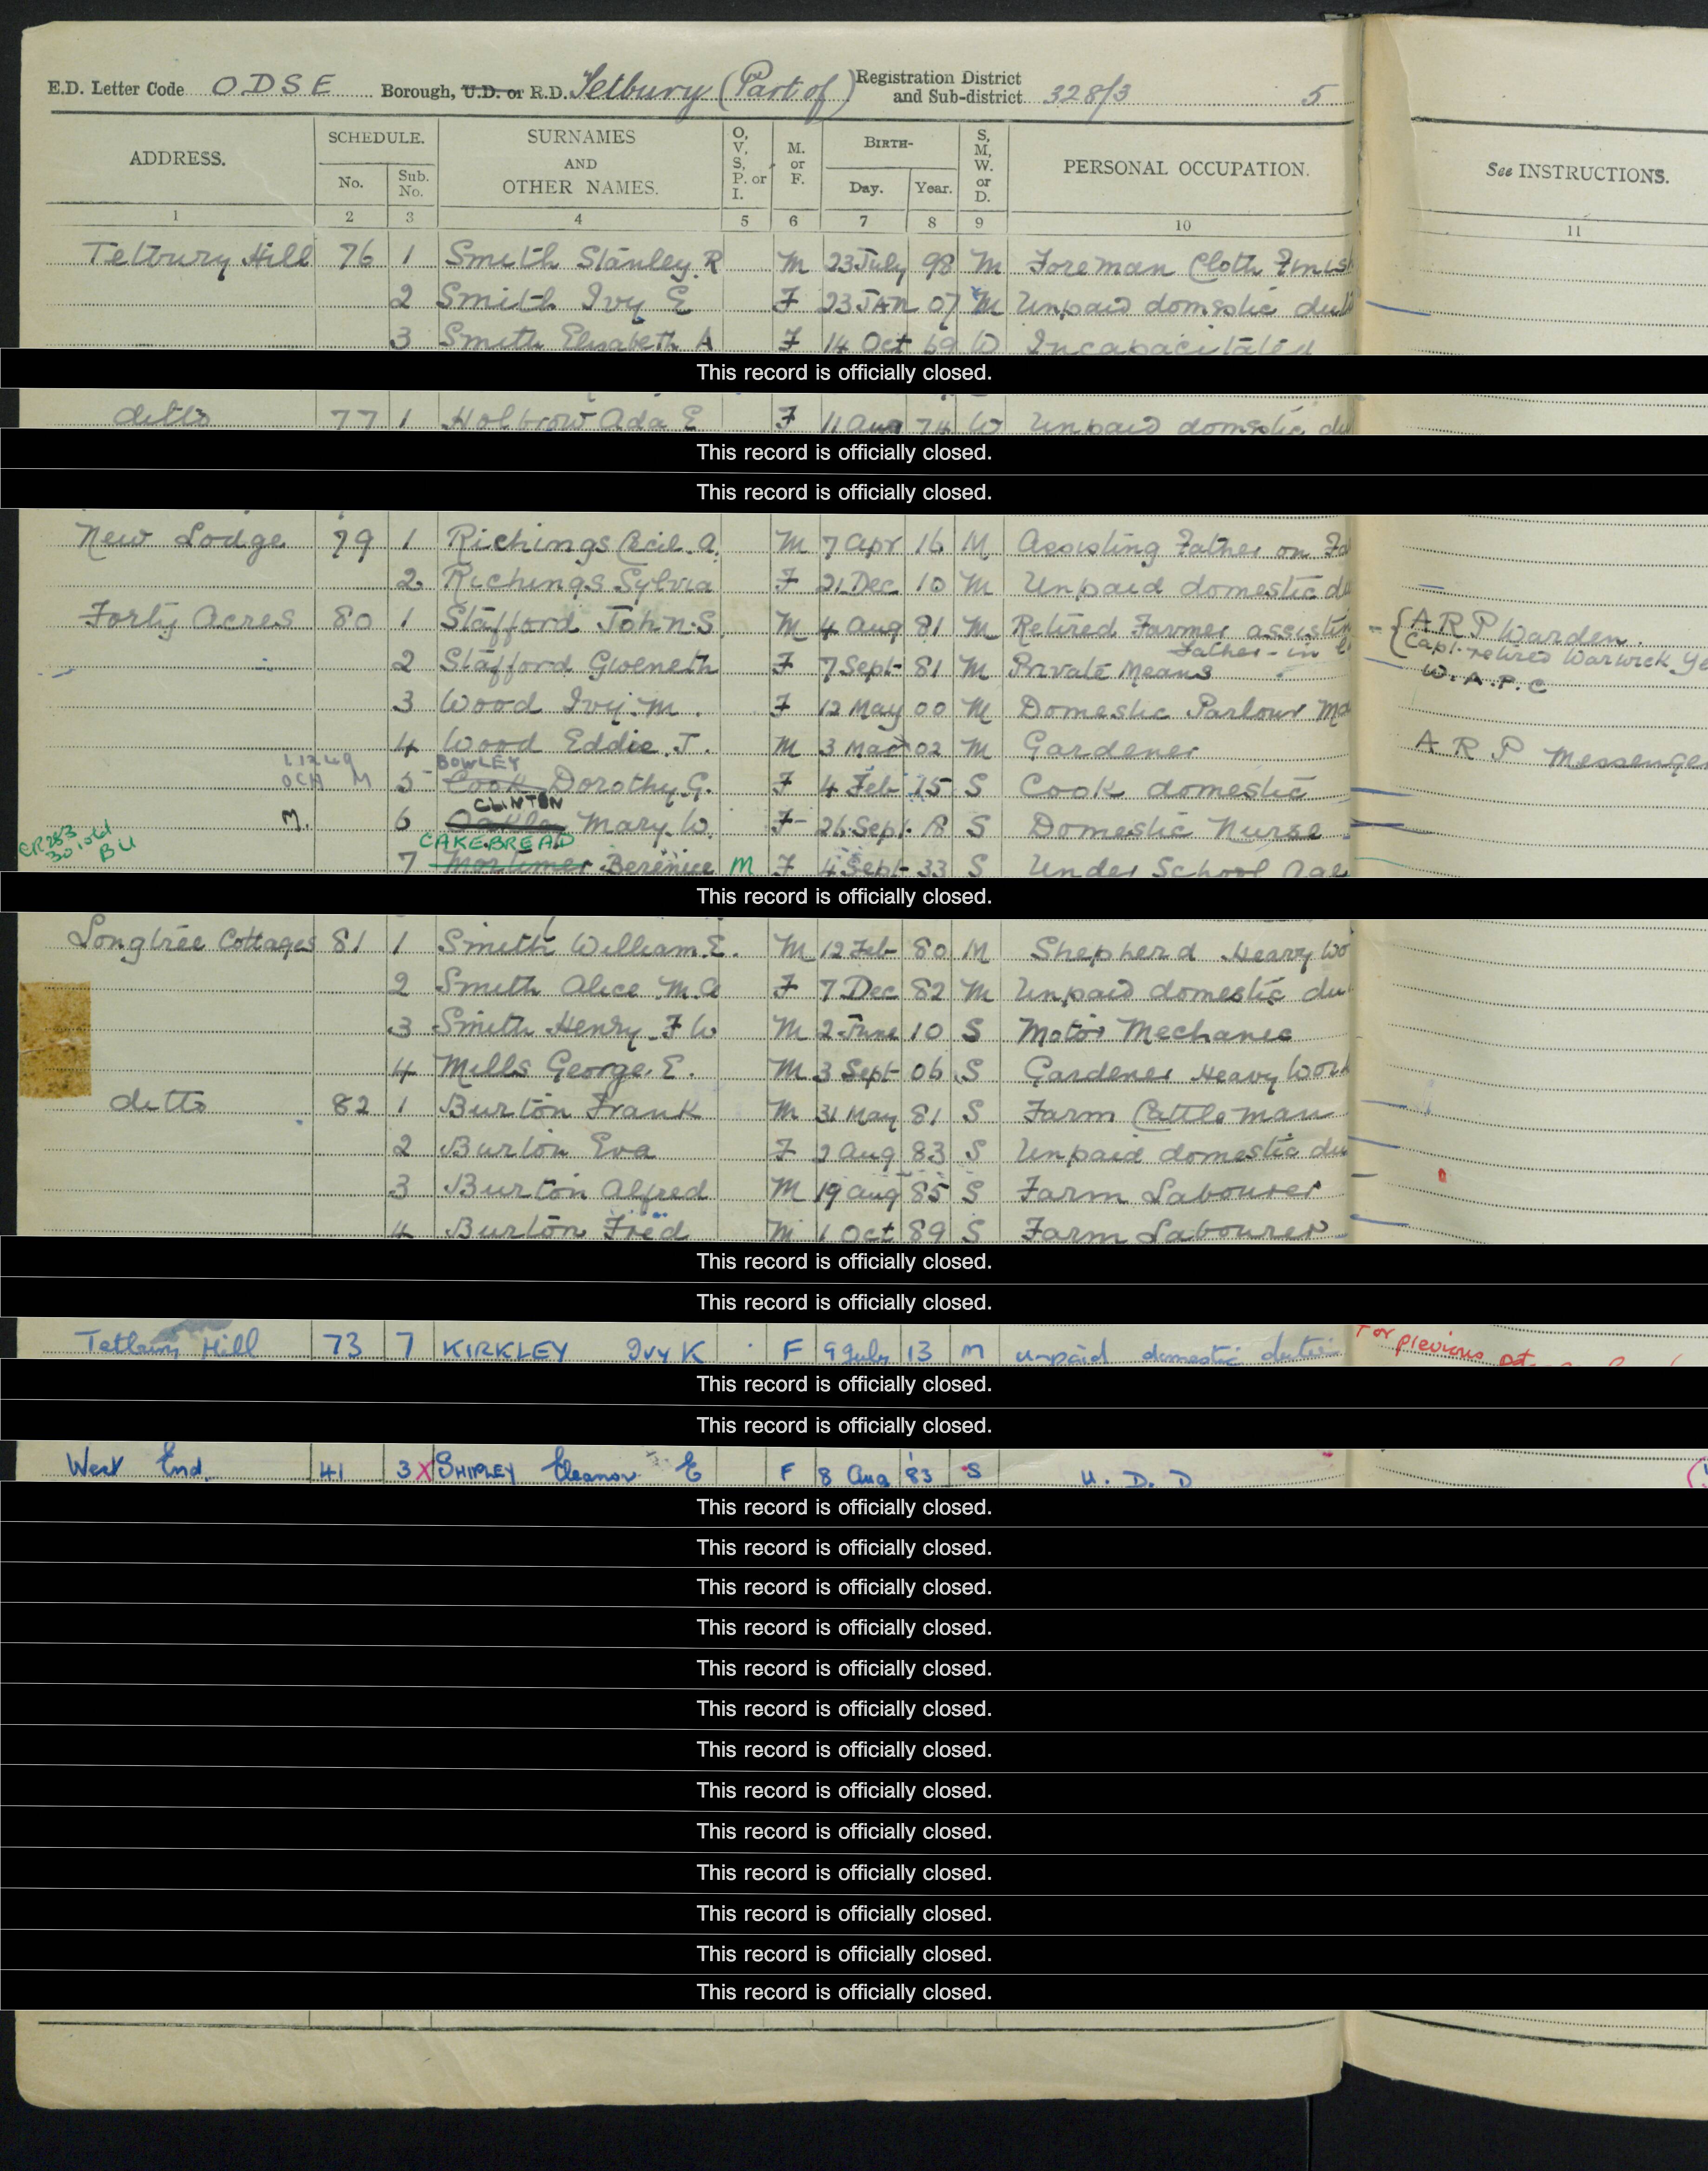 E.D. Letter Code ODSE Borough, U.D. or R.D. Tetbury (Part of) Registration District and Sub-district 328/3 5
ADDRESS. SCHEDULE. No. Sub. No. SURNAMES AND OTHER NAMES. O, V, S, P. or I. M. or F. BIRTH- Day. Year. S, M, W. or D. PERSONAL OCCUPATION. See INSTRUCTIONS.
1 2 3 4 5 6 7 8 9 10 11
Tetbury Hill 76 1 Smith Stanley R M 23 July 98 M Foreman Cloth Finish
2 Smith Ivy E F 23 JAN 07 M Unpaid domestic duti
3 Smith Elizabeth A F 14 Oct 69 W Incapacitated
This record is officially closed.
ditto 77 1 Holbrow Ada E F 11 Aug 74 W Unpaid domestic du
This record is officially closed.
This record is officially closed.
New Lodge 79 1 Richings Cecil A. M 7 Apr 16 M Assisting Father on Fa
2 Richings Sylvia F 21 Dec 10 M Unpaid domestic du
Forty Acres 80 1 Stafford John S. M 4 Aug 81 M Retired Farmer assistin Father-in { A R P Warden.
Capt. retired Warwick Ye
2 Stafford Gweneth F 7 Sept 81 M Private Means W.A.P.C
3 Wood Ivy M. F 12 May 00 M Domestic Parlour Ma
4 Wood Eddie J. M 3 Mar 02 M Gardener A R P Messenger
1.12.49 BOWLEY
OCH M 5 Cook Dorothy G. F 4 Feb 15 S Cook domestic
CLINTON
M. 6 Oakley Mary W. F 26 Sept. 18 S Domestic Nurse
CR283 30.10.61 BU CAKEBREAD
7 Mortimer Berenice M F 4 Sept 33 S Under School Age
This record is officially closed.
Longtree Cottages 81 1 Smith William E. M 12 Feb 80 M Shepherd Heavy Wo
2 Smith Alice M.A F 7 Dec 82 M Unpaid domestic du
3 Smith Henry F W M 2 June 10 S Motor Mechanic
4 Mills George E. M 3 Sept 06 S Gardener Heavy Work
ditto 82 1 Burton Frank M 31 May 81 S Farm Cattleman
2 Burton Eva F 2 Aug 83 S Unpaid domestic du
3 Burton Alfred M 19 Aug 85 S Farm Labourer
4 Burton Fred M 1 Oct 89 S Farm Labourer
This record is officially closed.
This record is officially closed.
Tetbury Hill 73 7 KIRKLEY Ivy K F 9 July 13 M unpaid domestic duties For previous
This record is officially closed.
This record is officially closed.
West End. 41 3 X SHIPLEY Eleanor E F 8 Aug '83 S U. D. D
This record is officially closed.
This record is officially closed.
This record is officially closed.
This record is officially closed.
This record is officially closed.
This record is officially closed.
This record is officially closed.
This record is officially closed.
This record is officially closed.
This record is officially closed.
This record is officially closed.
This record is officially closed.
This record is officially closed.